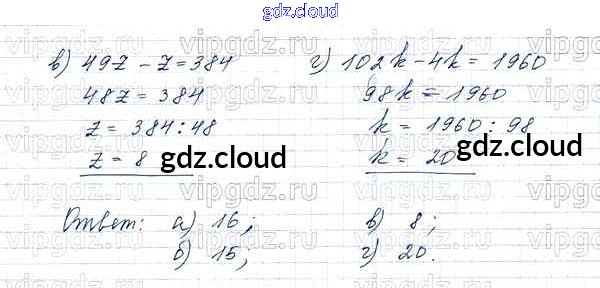 gdz.cloud
в) 49z - z = 384
48z = 384
z = 384 : 48
z = 8
г) 102k - 4k = 1960
98k = 1960
k = 1960 : 98
k = 20
gdz.cloud
gdz.cloud
Ответ: а) 16; в) 8;
б) 15; г) 20.
vipgdz.ru